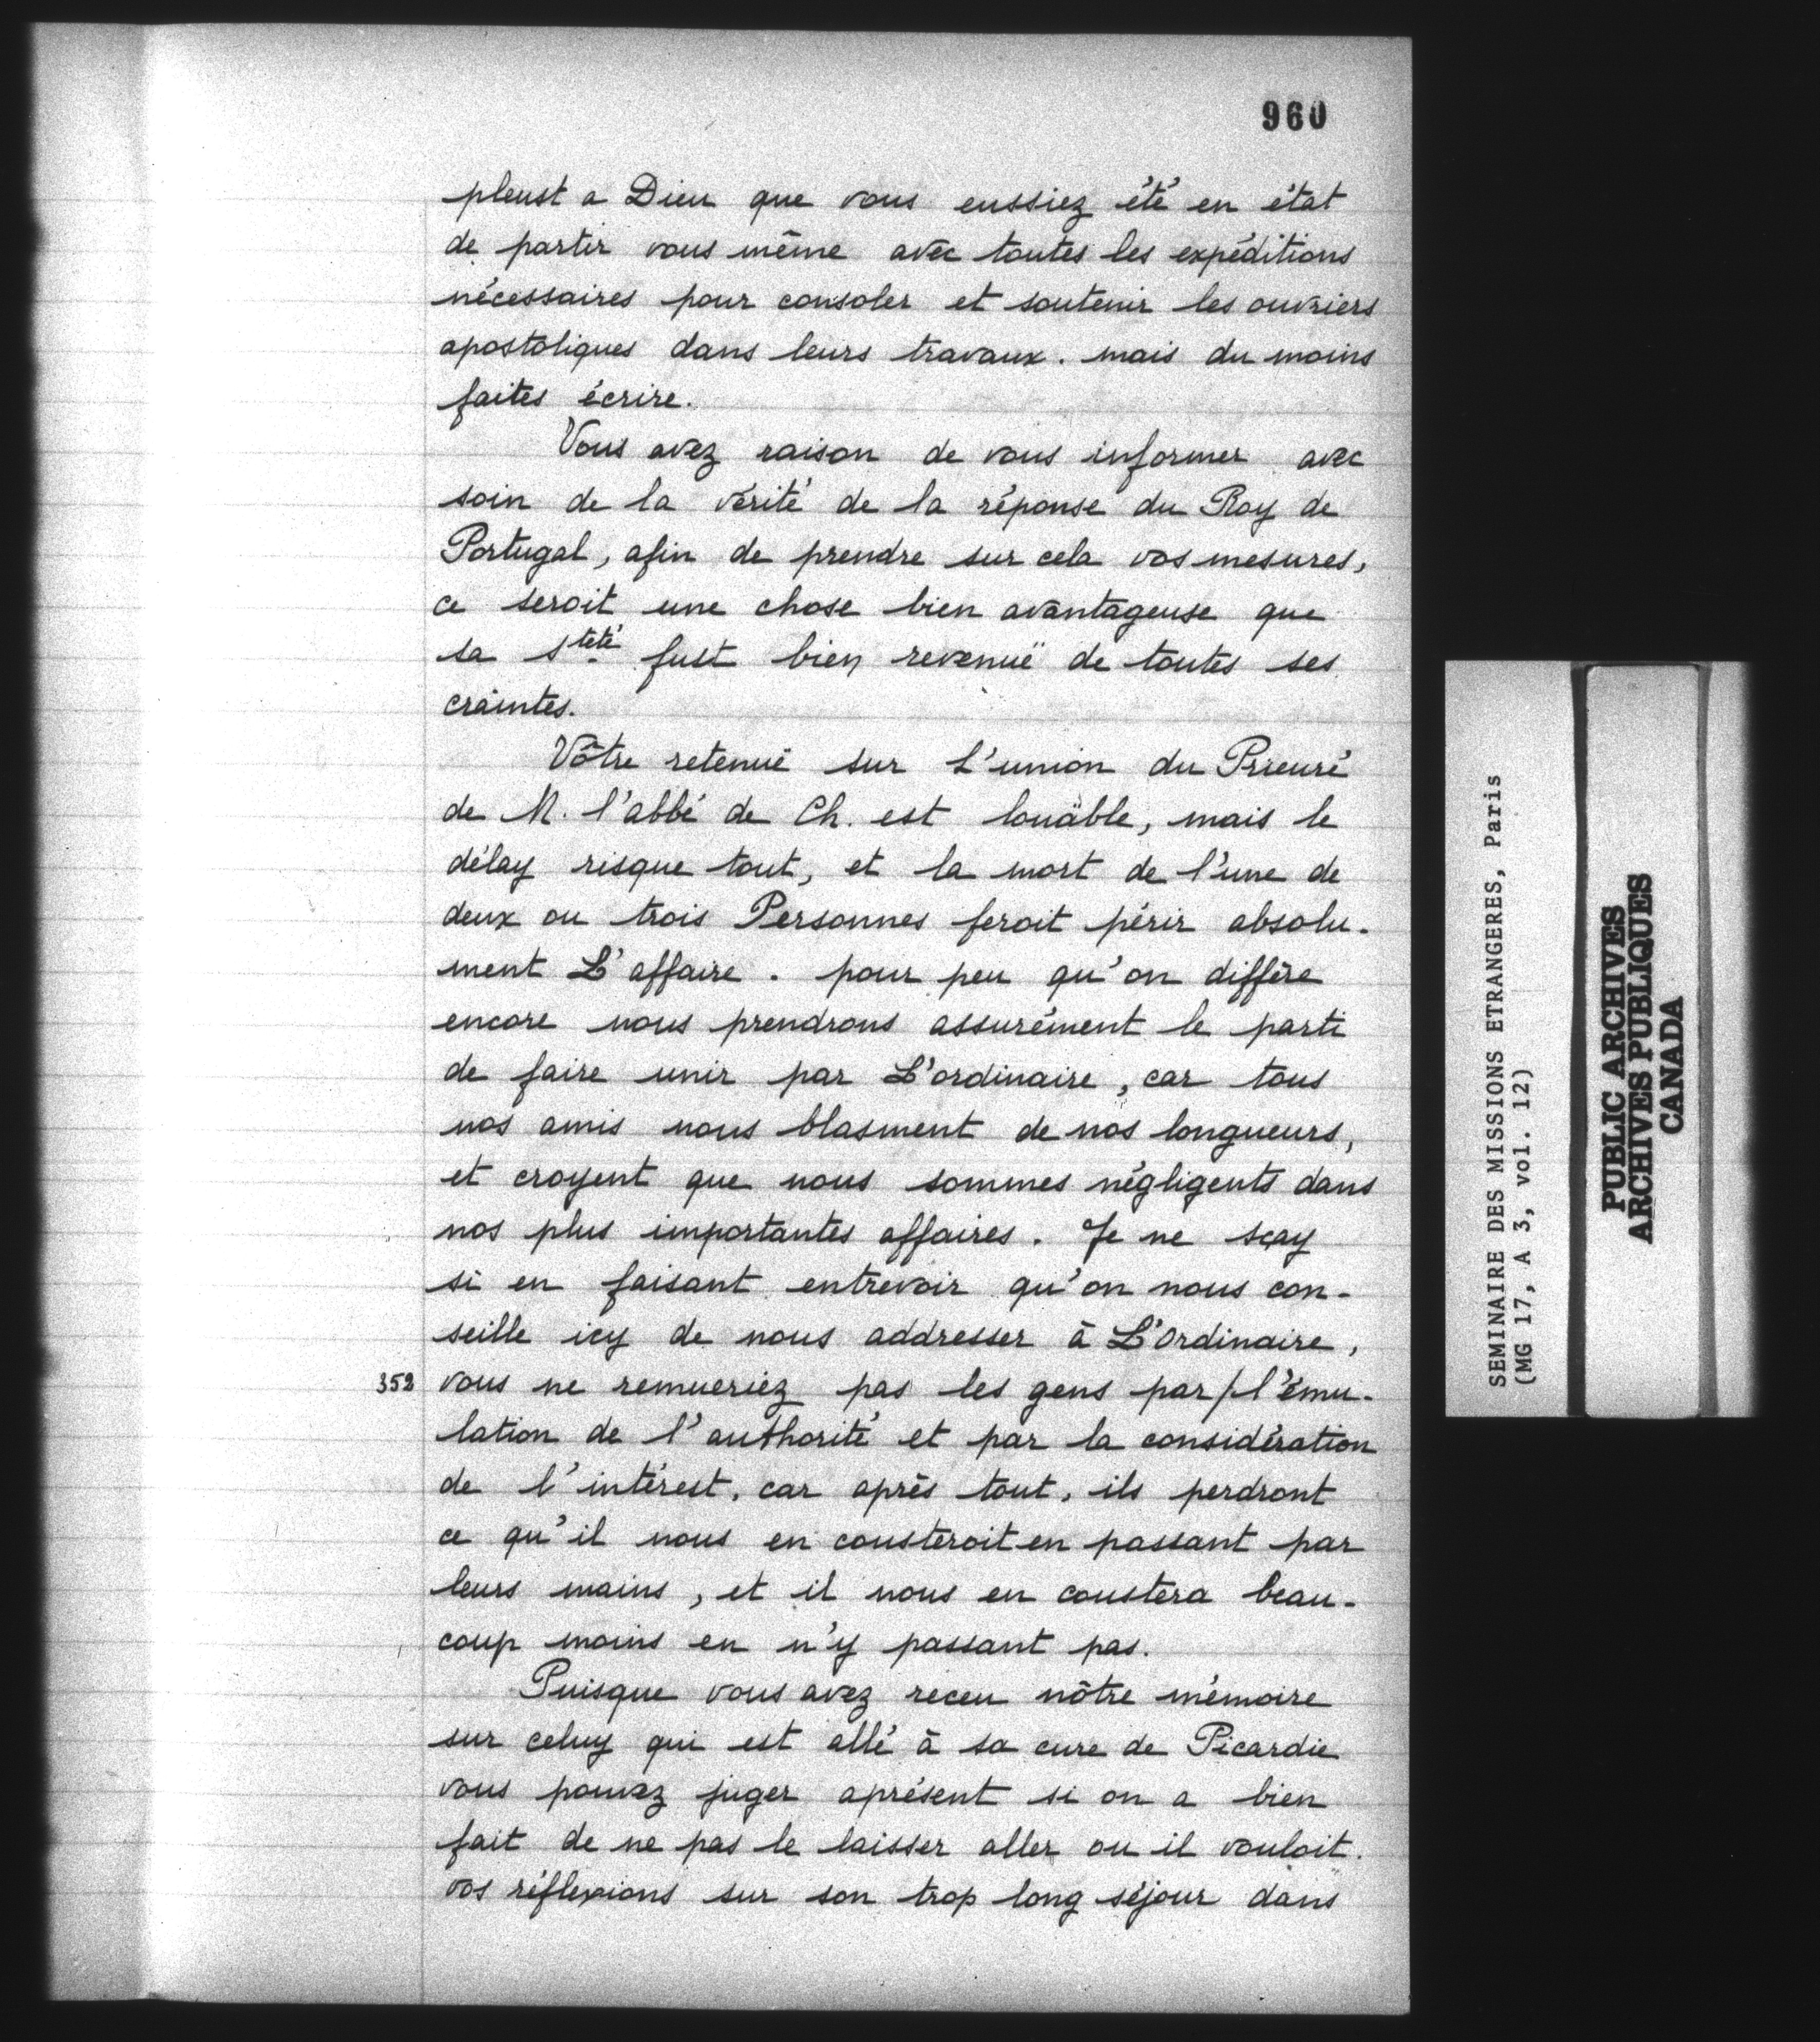 960
pleust a Dieu que vous eussiez été en état
de partir vous même avec toutes les expéditions
nécessaires pour consoler et soutenir les ouvriers
apostoliques dans leurs travaux. mais du moins
faites écrire.
Vous avez raison de vous informer avec
soin de la vérité de la réponse du Roy de
Portugal, afin de prendre sur cela vos mesures,
ce seroit une chose bien avantageuse que
sa Steté fust bien revenuë de toutes ses
craintes.
Vôtre retenuë sur L'union du Prieuré
de M. l'abbé de Ch. est louäble, mais le
délay risque tout, et la mort de l'une de
deux ou trois Personnes feroit périr absolu-
ment L'affaire. pour peu qu'on diffère
encore nous prendrons assurément le parti
de faire unir par L'ordinaire, car tous
nos amis nous blasment de nos longueurs,
et croyent que nous sommes négligents dans
nos plus importantes affaires. Je ne sçay
si en faisant entrevoir qu'on nous con-
seille icy de nous addresser à L'Ordinaire,
352 vous ne remueriez pas les gens par/l'ému-
lation de l'authorité et par la considération
de l'intérest, car après tout, ils perdront
ce qu'il nous en cousteroit en passant par
leurs mains, et il nous en coustera beau-
coup moins en n'y passant pas.
Puisque vous avez receu nôtre mémoire
sur celuy qui est allé à sa cure de Picardie
vous pouvez juger aprésent si on a bien
fait de ne pas le laisser aller ou il vouloit.
vos réflexions sur son trop long séjour dans
SEMINAIRE DES MISSIONS ETRANGERES, Paris
(MG 17, A 3, vol. 12)
PUBLIC ARCHIVES
ARCHIVES PUBLIQUES
CANADA